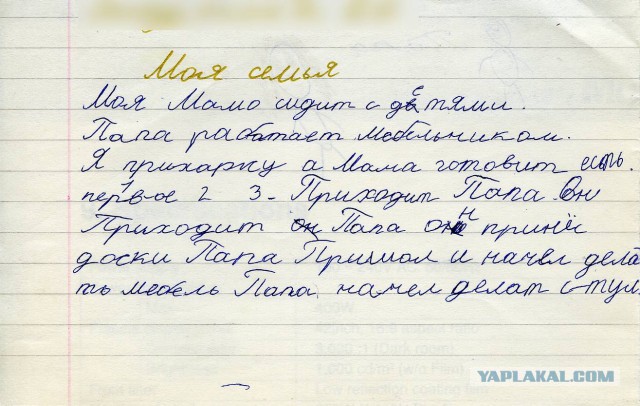 Моя семья
Моя Мамо сидит с детями.
Папа работает мебельником.
Я прихаржу а мама готовит есть.
первое 2 3. Приходит Папа. Он
Приходит он Папа он принёс
доски Папа Пришол и начел дела
ть мебель Папа начел делат стул.
YAPLAKAL.COM